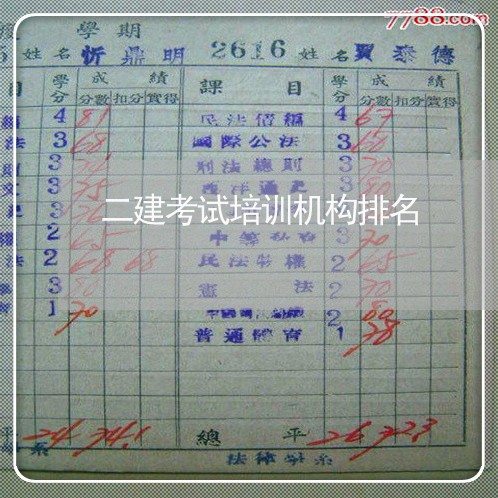 7788.com
學期
姓名 忻鼎明 2616 姓名 賈泰德
目 學分 成績 課目 學分 成績
分數 扣分 實得 分數 扣分 實得
4 81 民法債編 4 67
法 3 68 國際公法 3 60
3 刑法總則 3 70
3 75 西洋通史 3 80
二建考试培训机构排名
2 65 3 70
法 2 68 68 民法物權 2 65
3 80 憲法 2 70
1 70 2 80
普通體育 1 78
平 24 74.1 總平 26 72.3
系 法律學系